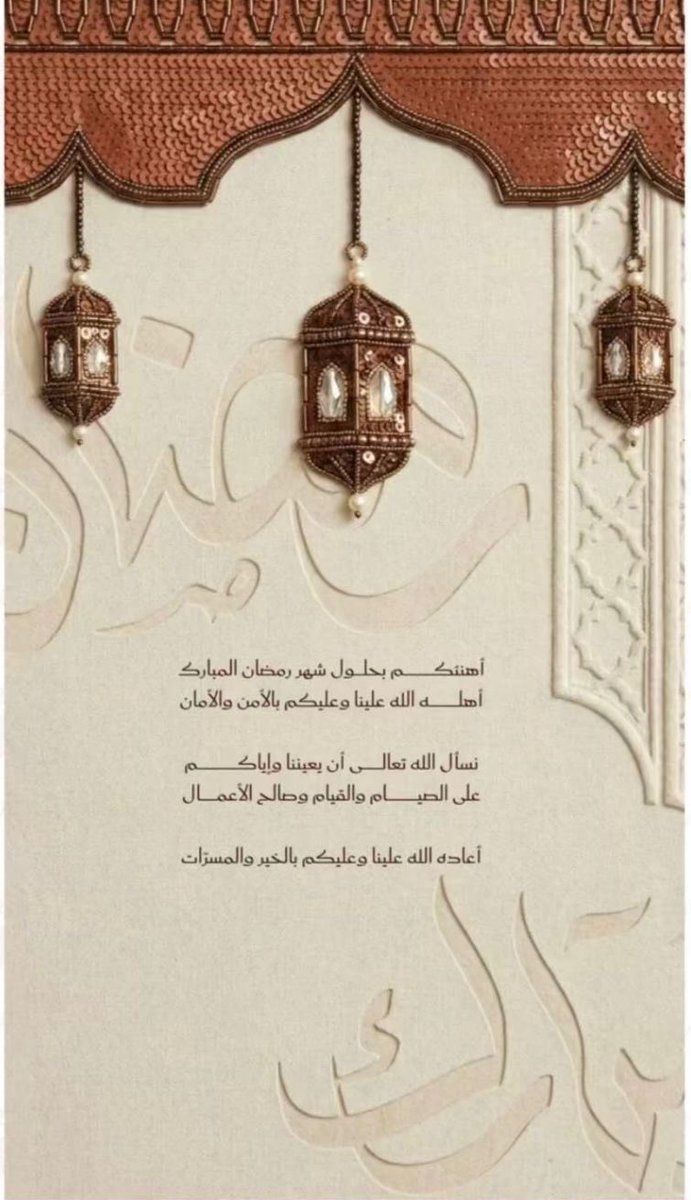 رمضان
أهنئكم بحلول شهر رمضان المبارك
أهله الله علينا وعليكم بالأمن والأمان
نسأل الله تعالى أن يعيننا وإياكم
على الصيام والقيام وصالح الأعمال
أعاده الله علينا وعليكم بالخير والمسرّات
مبارك